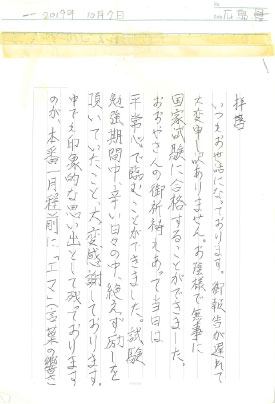 2019年 10月7日
拝啓
いつもお世話になっております。御報告が遅れて
大変申し訳ありません。お陰様で無事に
国家試験に合格することができました。
おおやさんの御祈祷もあって当日は
平常心で臨むことができました。試験
勉強期間中、辛い日々の中、絶えず励しを
頂いていたこと、大変感謝しております。
中でも印象的な思い出として残っております
のが、本番一月程前に「エマ」(言葉の響き